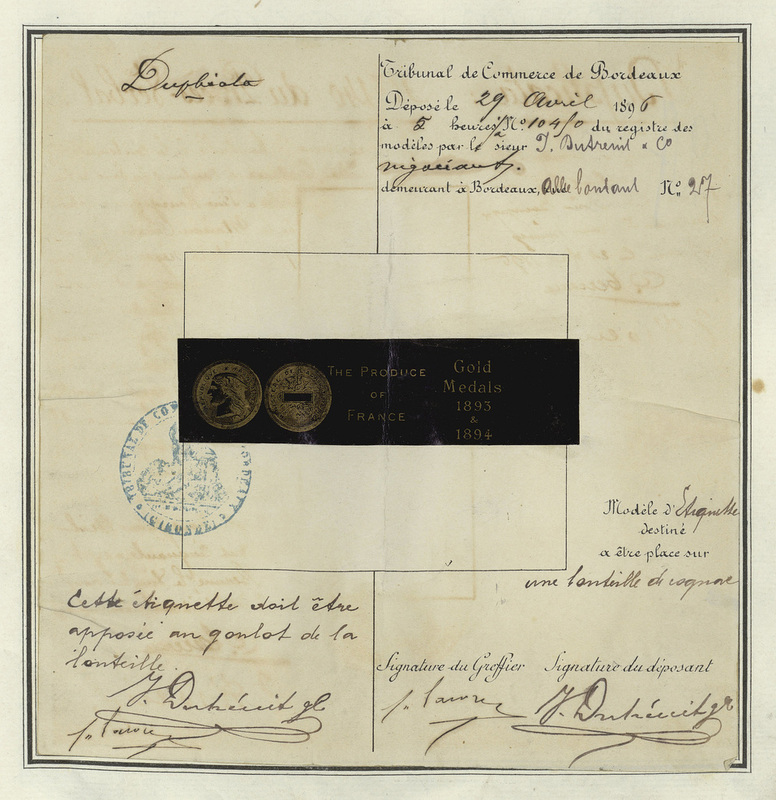 Duplicata
Tribunal de Commerce de Bordeaux
Déposé le 29 Avril 1896
à 5 heures Nº 10450 du registre des
modèles par le sieur J. Dutrénit & Co
négociant.
demeurant à Bordeaux, Nº 27
The Produce
of
France
Gold
Medals
1893
&
1894
TRIBUNAL DE COMMERCE BORDEAUX
(GIRONDE)
Modèle d'Étiquette
destiné
a être place sur
une bouteille de cognac
Cette étiquette doit être
apposée au goulot de la
bouteille.
Signature du Greffier Signature du déposant
J. Dutrénit
J. Dutrénit